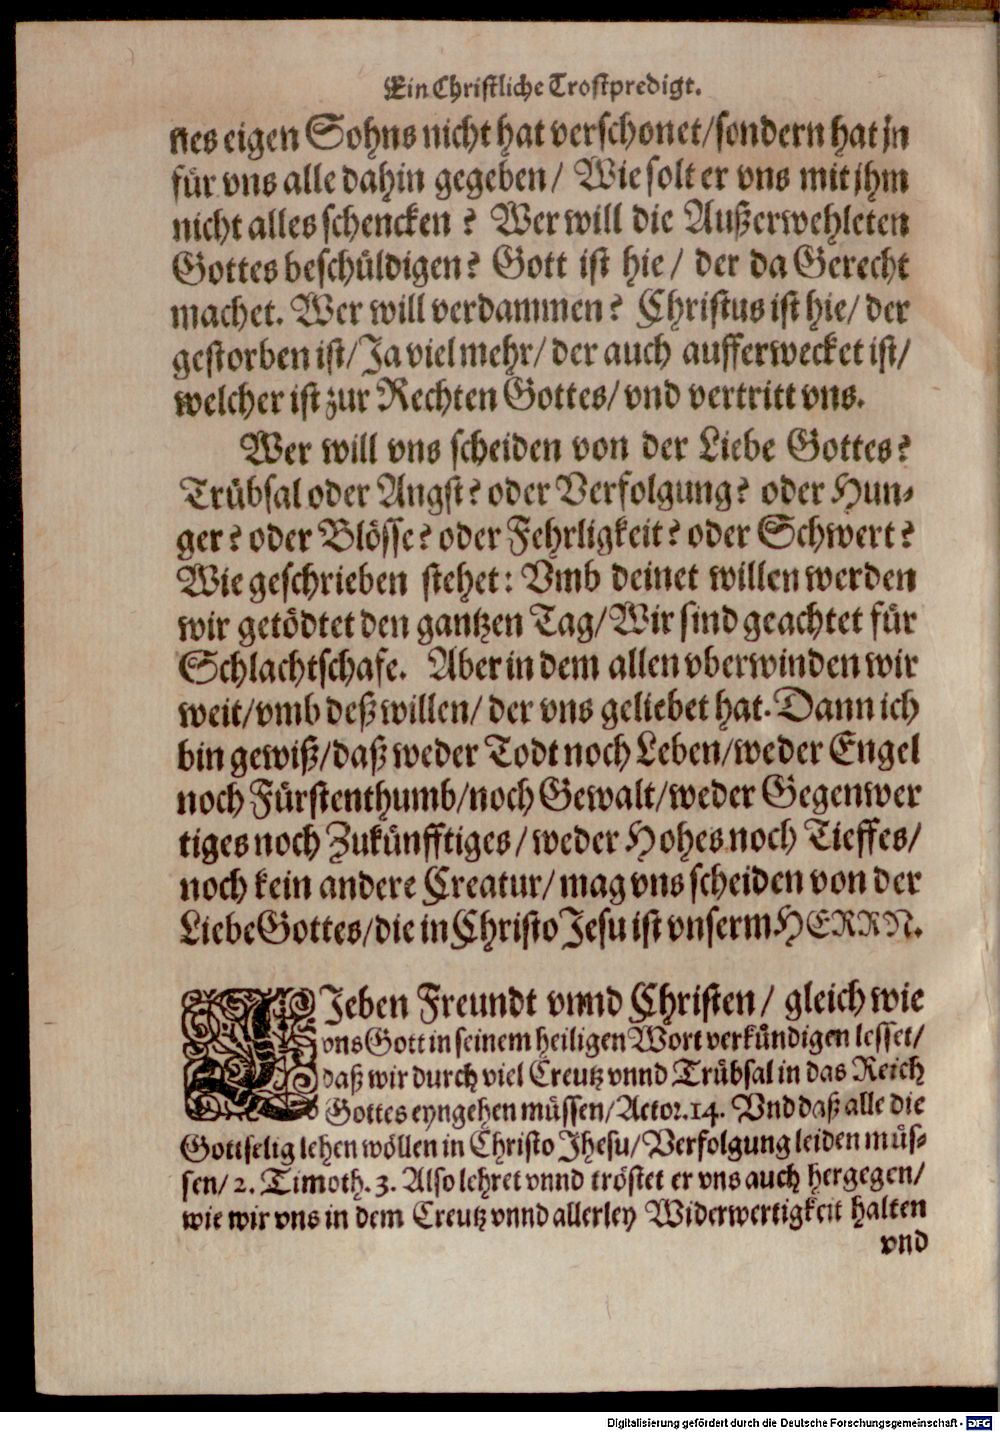 Ein Christliche Trostpredigt.
nes eigen Sohns nicht hat verschonet/sondern hat jn
für vns alle dahin gegeben/ Wie solt er vns mit jhm
nicht alles schencken? Wer will die Außerwehleten
Gottes beschüldigen? Gott ist hie/ der da Gerecht
machet. Wer will verdammen? Christus ist hie/ der
gestorben ist/Ja viel mehr/ der auch aufferwecket ist/
welcher ist zur Rechten Gottes/ vnd vertritt vns.
Wer will vns scheiden von der Liebe Gottes?
Trübsal oder Angst? oder Verfolgung? oder Hun-
ger? oder Blösse? oder Fehrligkeit? oder Schwert?
Wie geschrieben stehet: Vmb deinet willen werden
wir getödtet den gantzen Tag/Wir sind geachtet für
Schlachtschafe. Aber in dem allen vberwinden wir
weit/vmb deß willen/ der vns geliebet hat. Dann ich
bin gewiß/daß weder Todt noch Leben/weder Engel
noch Fürstenthumb/noch Gewalt/weder Gegenwer
tiges noch Zukünfftiges/ weder Hohes noch Tieffes/
noch kein andere Creatur/ mag vns scheiden von der
Liebe Gottes/die in Christo Jesu ist vnserm HERRN.
LJeben Freundt vnnd Christen/ gleich wie
vns Gott in seinem heiligen Wort verkündigen lesset/
daß wir durch viel Creutz vnnd Trübsal in das Reich
Gottes eyngehen müssen/Actor.14. Vnd daß alle die
Gottselig lehen wöllen in Christo Jhesu/Verfolgung leiden müs-
sen/ 2. Timoth. 3. Also lehret vnnd tröstet er vns auch hergegen/
wie wir vns in dem Creutz vnnd allerley Widerwertigkeit halten
vnd
Digitalisierung gefördert durch die Deutsche Forschungsgemeinschaft - DFG